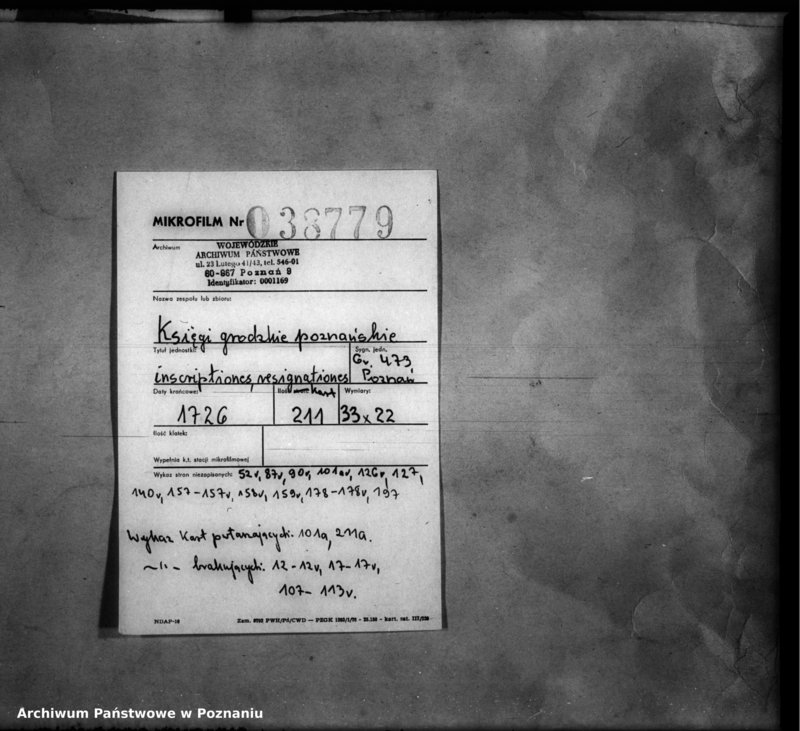 MIKROFILM Nr 038779
Archiwum
WOJEWÓDZKIE
ARCHIWUM PAŃSTWOWE
ul. 23 Lutego 41/43, tel. 546-01
60-967 Poznań 9
Identyfikator: 0001169
Nazwa zespołu lub zbioru:
Księgi grodzkie poznańskie
Tytuł jednostki:
Sygn. jedn.
Gr. 473
Poznań
inscriptiones, resignationes
Daty krańcowe:
Ilość kart
Wymiary:
1726
211
33 x 22
Ilość klatek:
Wypełnia k.t. stacji mikrofilmowej
Wykaz stron niezapisanych: 52v, 87v, 90v, 101av, 126v, 127,
140v, 157-157v, 158v, 159v, 178-178v, 197
Wykaz kart powtarzających: 101a, 211a.
-"- brakujących: 12-12v, 17-17v,
107-113v.
NDAP-16
Archiwum Państwowe w Poznaniu